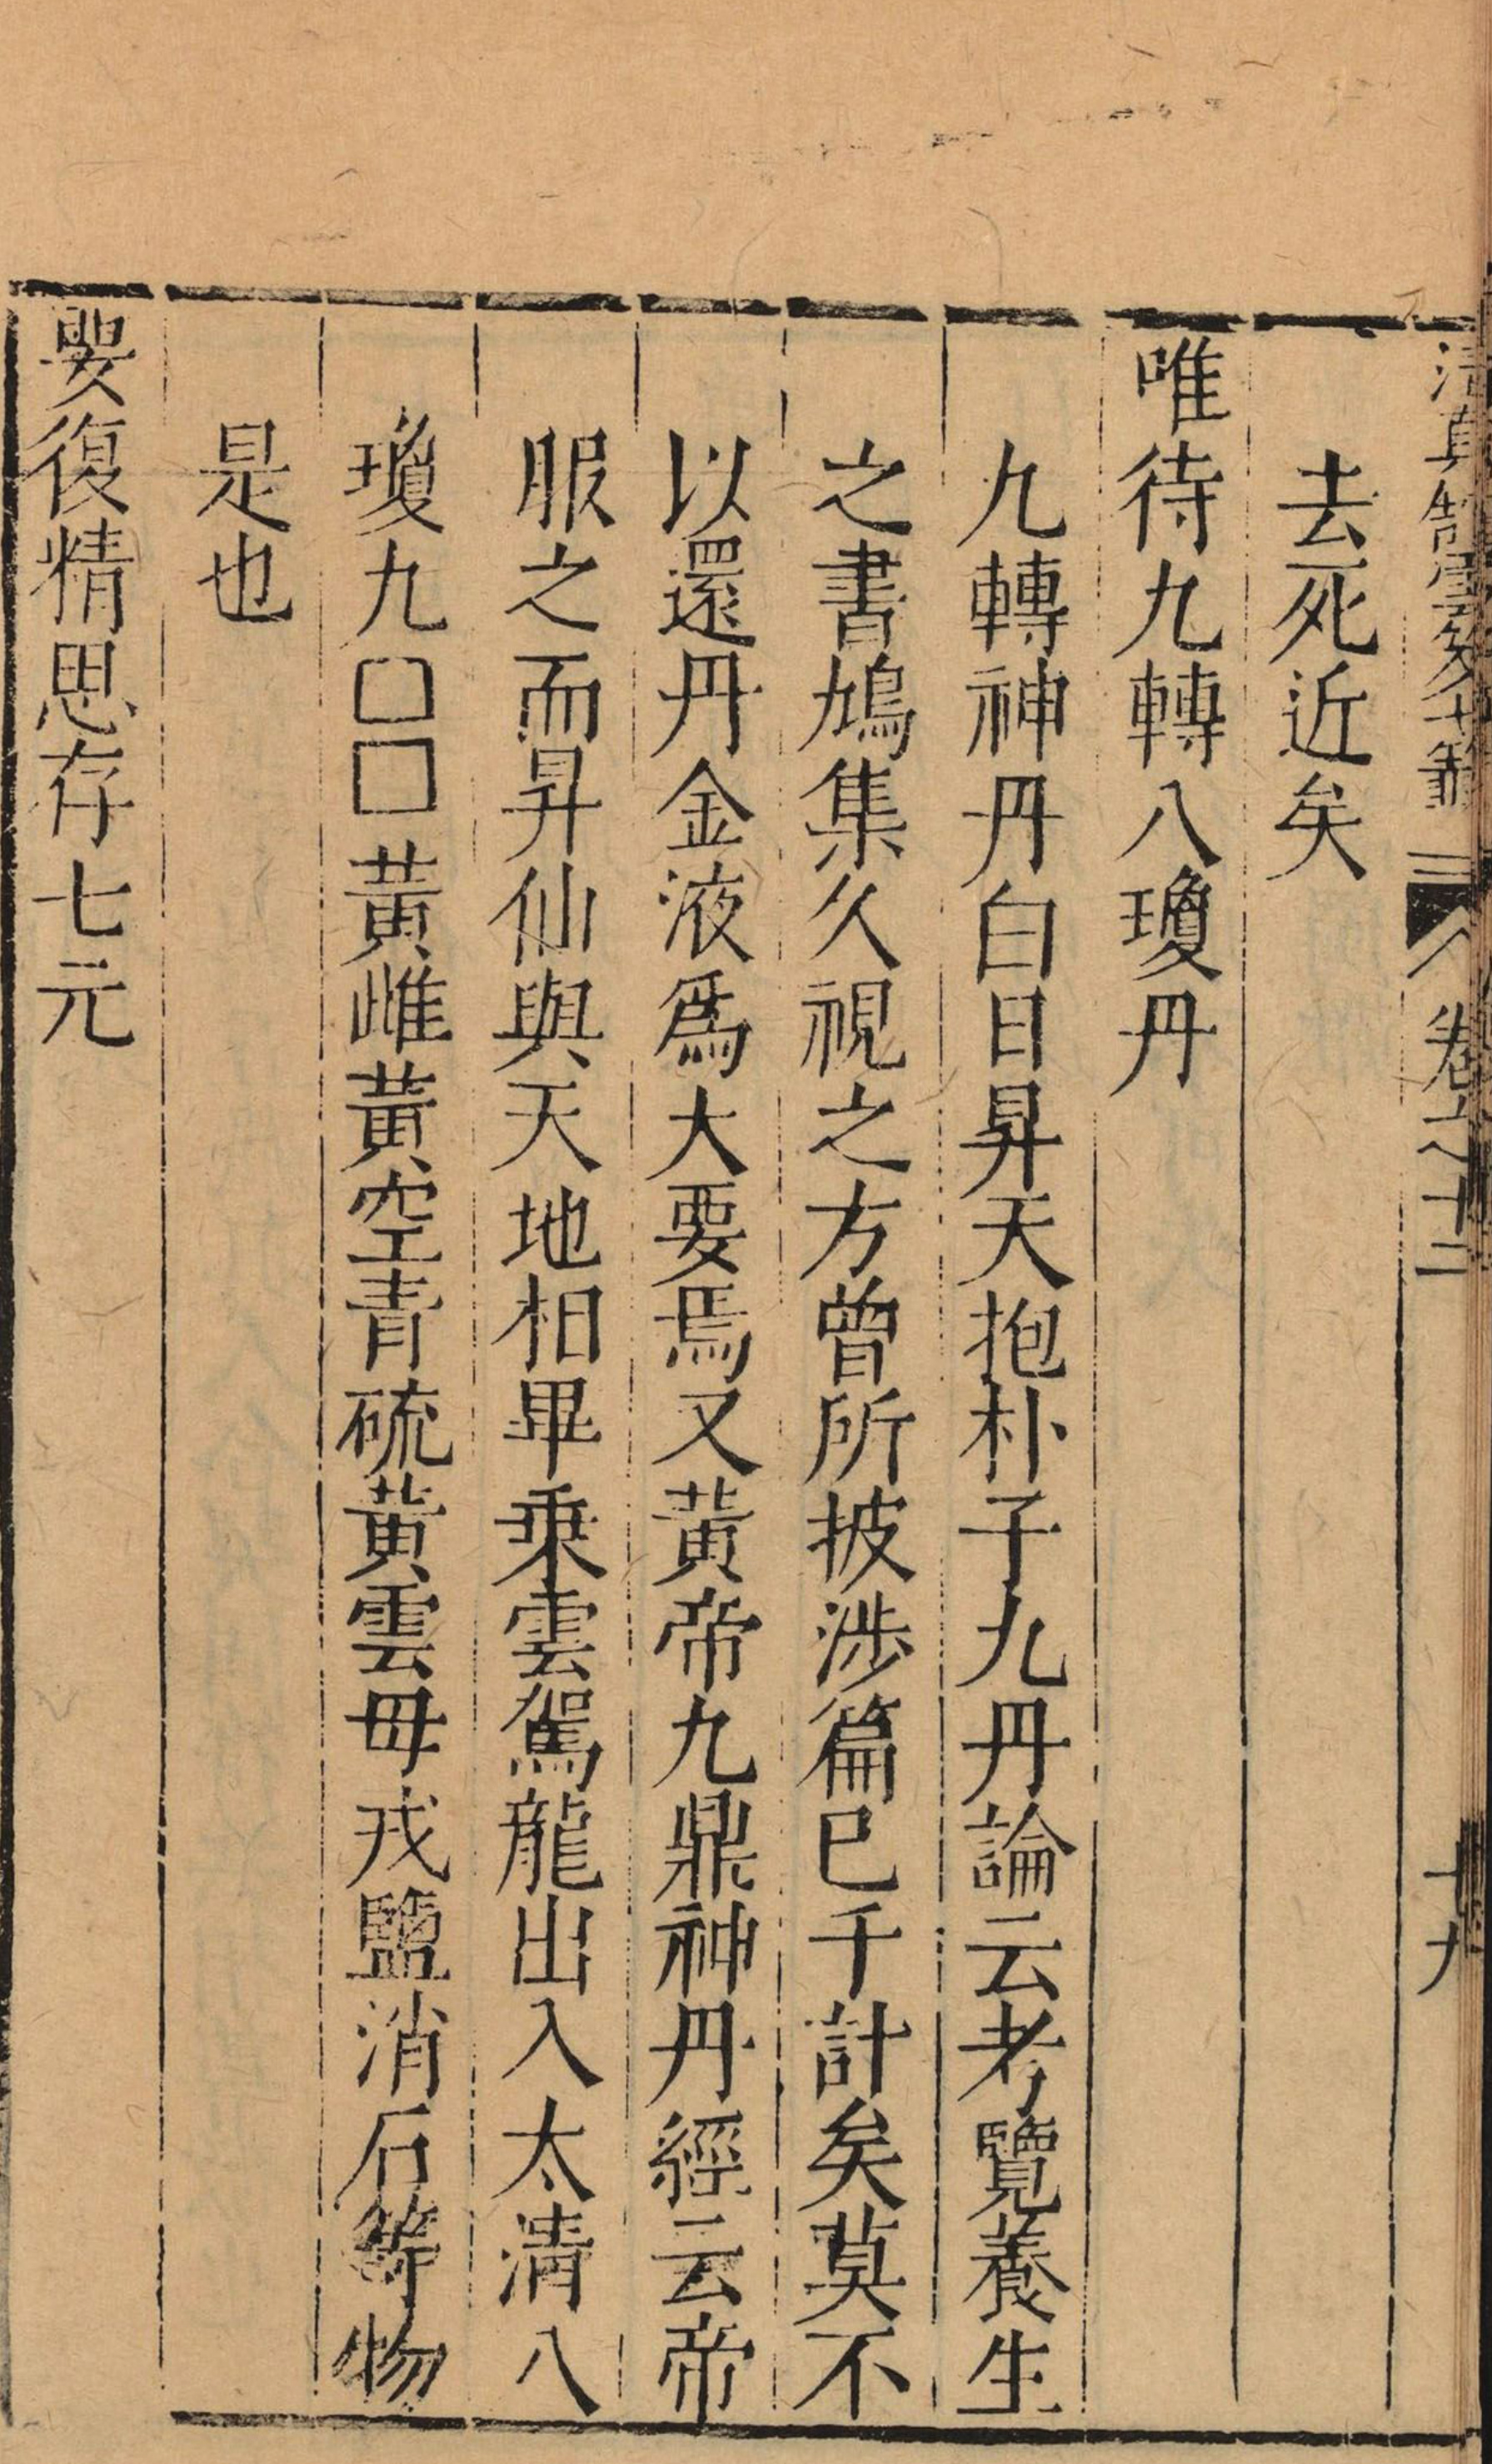 卷之十二
十九
去死近矣
唯待九轉八瓊丹
九轉神丹白日昇天抱朴子九丹論云考覽養生
之書鳩集久視之方曾所披涉篇已千計矣莫不
以還丹金液爲大要焉又黃帝九鼎神丹經云帝
服之而昇仙與天地相畢乘雲駕龍出入太清八
瓊九□□黃雌黃空青硫黃雲母戎鹽消石等物
是也
要復精思存七元